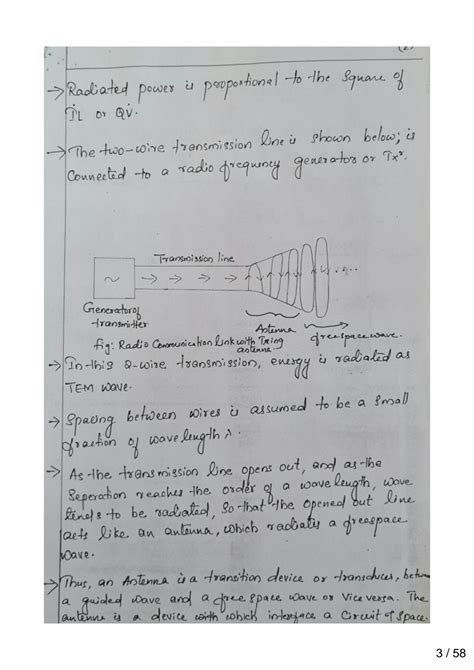 → Radiated power is proportional to the Square of
İL or QV̇.
→ The two-wire transmission line is shown below; is
Connected to a radio frequency generator or Txr.
Transmission line
~
Generator of
transmitter
Antenna
freespace wave.
fig: Radio Communication Link with Txing
antenna
→ In this 2-wire transmission, energy is radiated as
TEM wave.
→ Spacing between wires is assumed to be a small
fraction of wavelength λ.
→ As the transmission line opens out, and as the
Seperation reaches the order of a wavelength, wave
tends to be radiated, So that the opened out line
acts like an antenna, which radiates a freespace
wave.
→ Thus, an Antenna is a transition device or transducer, between
a guided wave and a free space wave or Vice versa. The
antenna is a device with which interface a Circuit & Space.
3 / 58